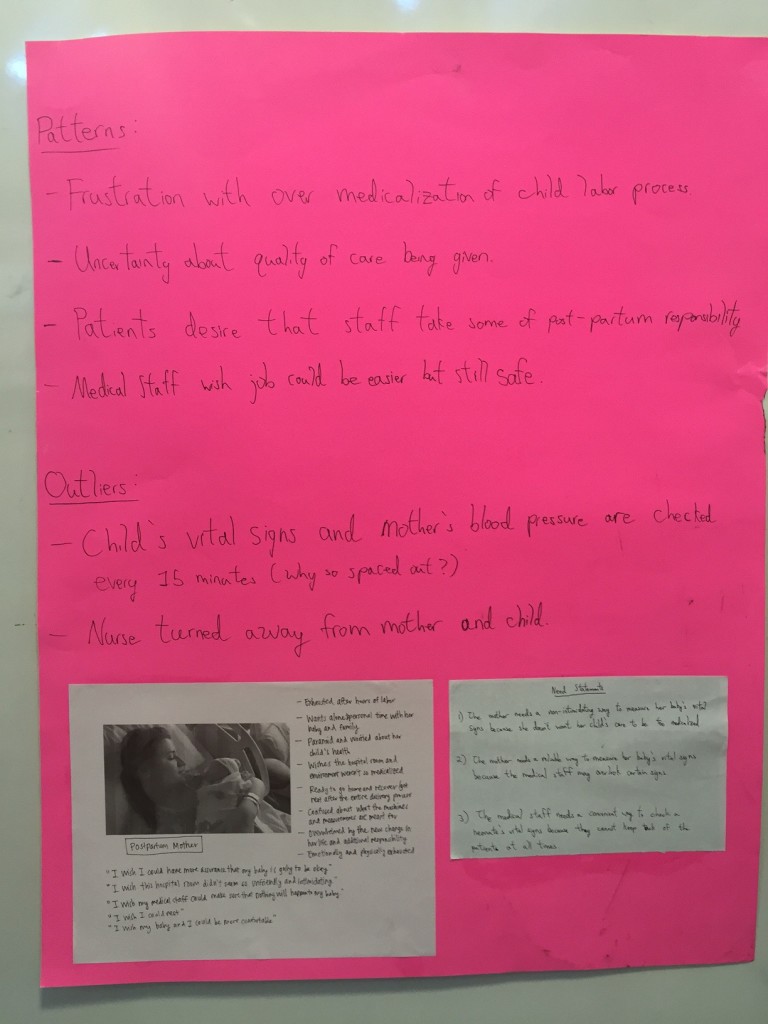 Patterns:
- Frustration with over medicalization of child labor process.
- Uncertainty about quality of care being given.
- Patients desire that staff take some of post-partum responsibility
- Medical staff wish job could be easier but still safe.
Outliers:
- Child's vital signs and mother's blood pressure are checked
every 15 minutes (why so spaced out?)
- Nurse turned away from mother and child.
- Exhausted after hours of labor
- Wants alone/personal time with her
baby and family
- Paranoid and worried about her
child's health
- Wishes the hospital room and
environment weren't so medicalized
- Ready to go home and recover/get
rest after the entire delivery process
- Confused about what the machines
and measurements are meant for
- Overwhelmed by the new change to
her life and additional responsibility
- Emotionally and physically exhausted
Postpartum Mother
"I wish I could have more assurance that my baby is going to be okay"
"I wish this hospital room didn't seem so unfriendly and intimidating"
"I wish my medical staff could make sure that nothing will happen to my baby"
"I wish I could rest"
"I wish my baby and I could be more comfortable"
Need Statements
1) The mother needs a non-intimidating way to measure her baby's vital
signs because she doesn't want her child's care to be too medicalized
2) The mother needs a reliable way to measure her baby's vital signs
because the medical staff may certain signs
3) The medical staff needs a convenient way to check a
neonate's vital signs because they cannot keep track of the
patients at all times